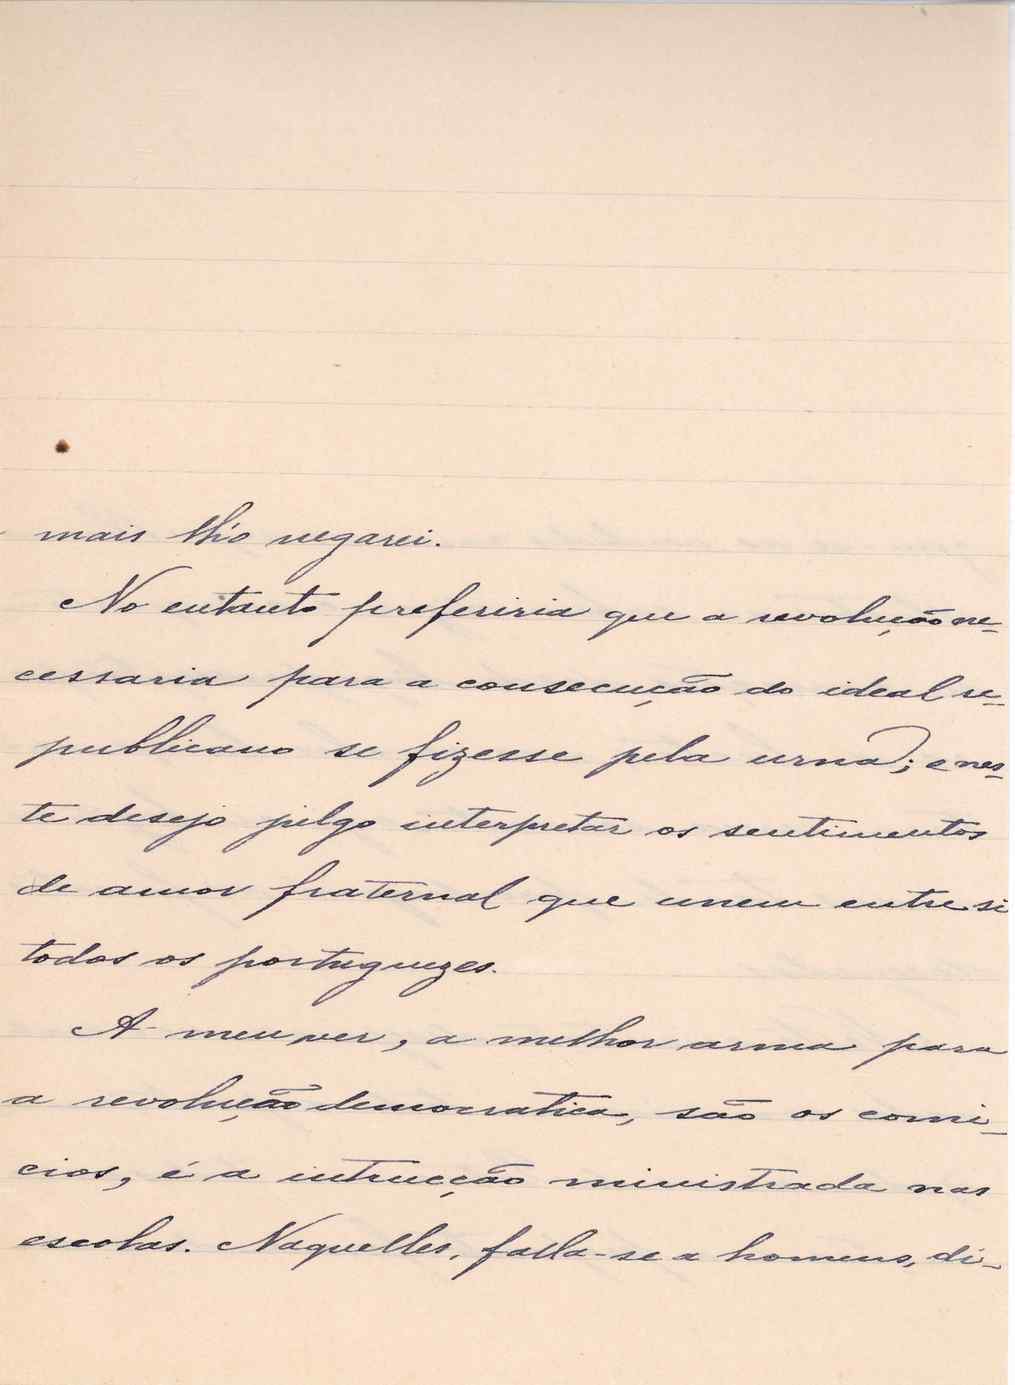 mais lh'o negarei.
No entanto preferiria que a revolução ne-
cessaria para a consecução do ideal re-
publicano se fizesse pela urna; e nes-
te desejo julgo interpretar os sentimentos
de amor fraternal que unem entre si
todos os portuguezes.
A meu ver, a melhor arma para
a revolução democratica, são os comi-
cios, é a intrucção ministrada nas
escolas. Naquelles, falla-se a homens, di-